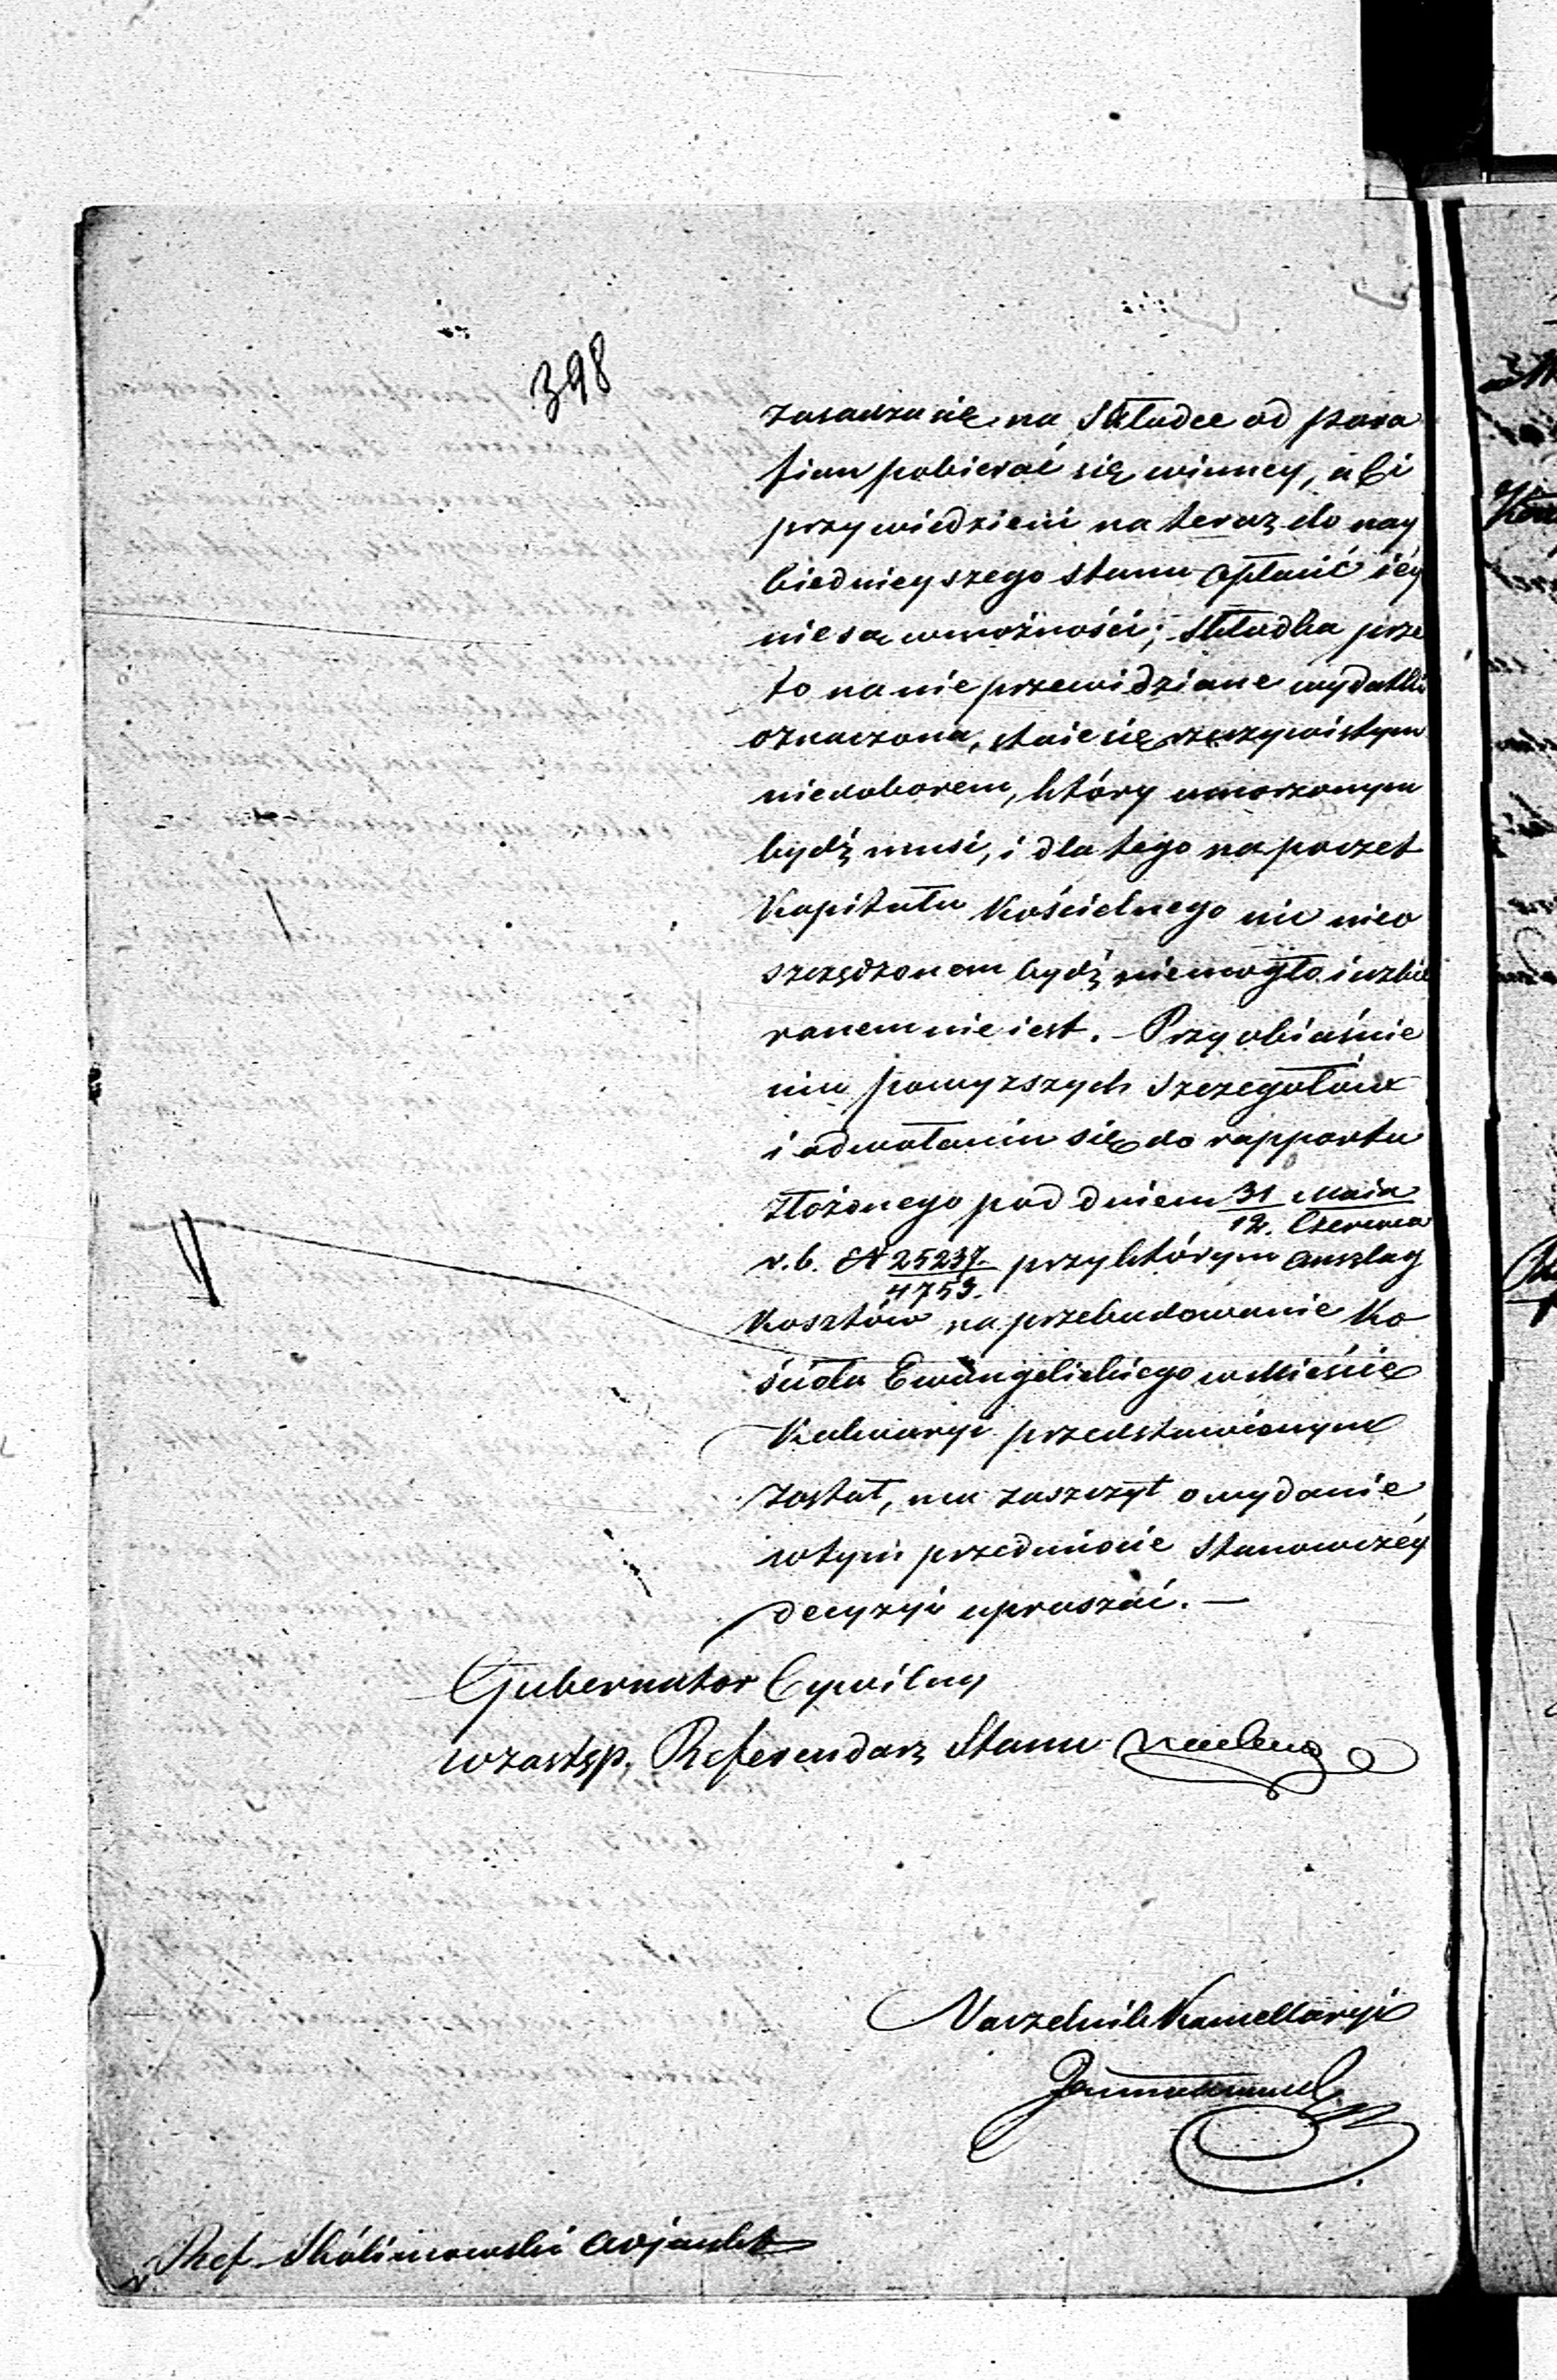 398
zasadza się na Składce od para
fian pobierać się winney, a Ci
przywiedzieni na teraz do nay
biednieyszego stanu opłacić iéy
nie są wmożności; Składka prze
to na nie przewidziane wydatki
oznaczona, staie się rzeczywistym
niedoborem, który umorzonym
bydź musi, i dla tego na poczet
Kapitału Kościelnego nic nieo
szczędzonem bydź niemogło i uzbie
ranem nie iest. – Przy obiaśnie
niu powyzszych Szczegółów
i odwołaniu się do rapportu
złożonego pod dniem 31 Maia / 12. Czerwca
r. b. N 25237. / 4753. przy którym Anszlag
Kosztów na przebudowanie Ko
ścioła Ewangelickiego w Mieście
Kalwaryi przedstawionym
został, ma zaszczyt o wydanie
wtym przedmiocie Stanowczéy
decyzyi upraszać. —
Gubernator Cywilny
w zastęp. Referendarz Stanu
Naczelnik Kancellaryi
Ref. Adjunkt